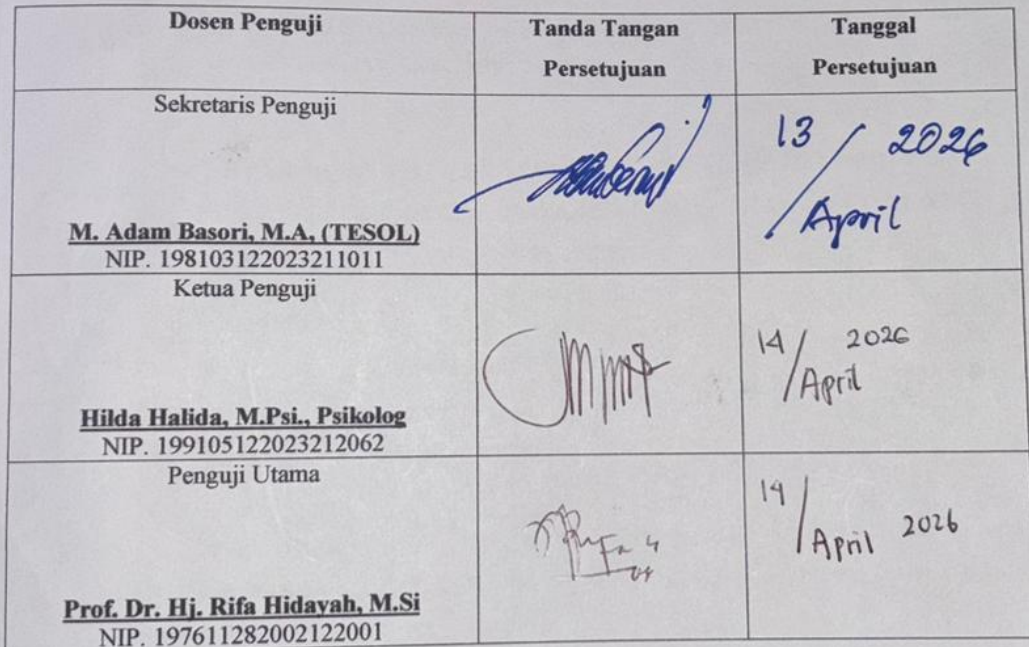 Dosen Penguji
Tanda Tangan
Persetujuan
Tanggal
Persetujuan
Sekretaris Penguji
M. Adam Basori, M.A, (TESOL)
NIP. 198103122023211011
13 / April 2026
Ketua Penguji
Hilda Halida, M.Psi., Psikolog
NIP. 199105122023212062
14 / April 2026
Penguji Utama
Prof. Dr. Hj. Rifa Hidayah, M.Si
NIP. 197611282002122001
14 / April 2026